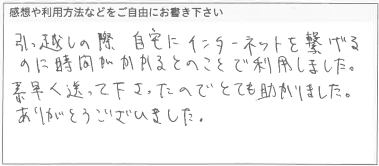 感想や利用方法などをご自由にお書き下さい
引っ越しの際 自宅にインターネットを繋げる
のに時間がかかるとのことで利用しました。
素早く送って下さったのでとても助かりました。
ありがとうございました。